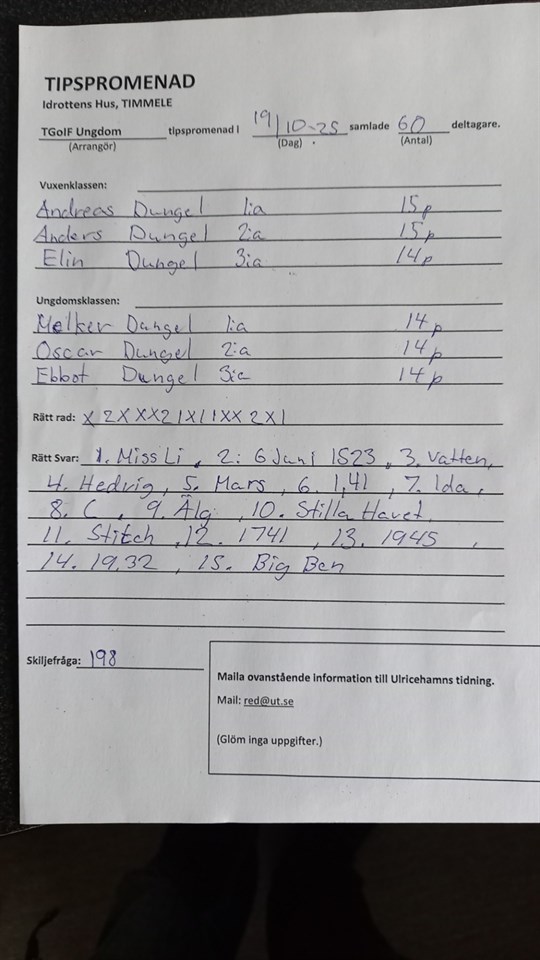 TIPSPROMENAD
Idrottens Hus, TIMMELE
TGoIF Ungdom tipspromenad I 19/10-25 samlade 60 deltagare.
(Arrangör) (Dag) (Antal)
Vuxenklassen:
Andreas Dungel 1:a 15p
Anders Dungel 2:a 15p
Elin Dungel 3:a 14p
Ungdomsklassen:
Melker Dungel 1:a 14p
Oscar Dungel 2:a 14p
Ebbot Dungel 3:e 14p
Rätt rad: X2XXX21X11XX2X1
Rätt Svar: 1. Miss Li, 2: 6 Juni 1523, 3. vatten,
4. Hedvig, 5. Mars, 6. 1,41, 7. Ida,
8. C, 9. Älg, 10. Stilla Havet,
11. Stitch, 12. 1741, 13. 1945,
14. 19.32, 15. Big Ben
Skiljefråga: 198
Maila ovanstående information till Ulricehamns tidning.
Mail: red@ut.se
(Glöm inga uppgifter.)